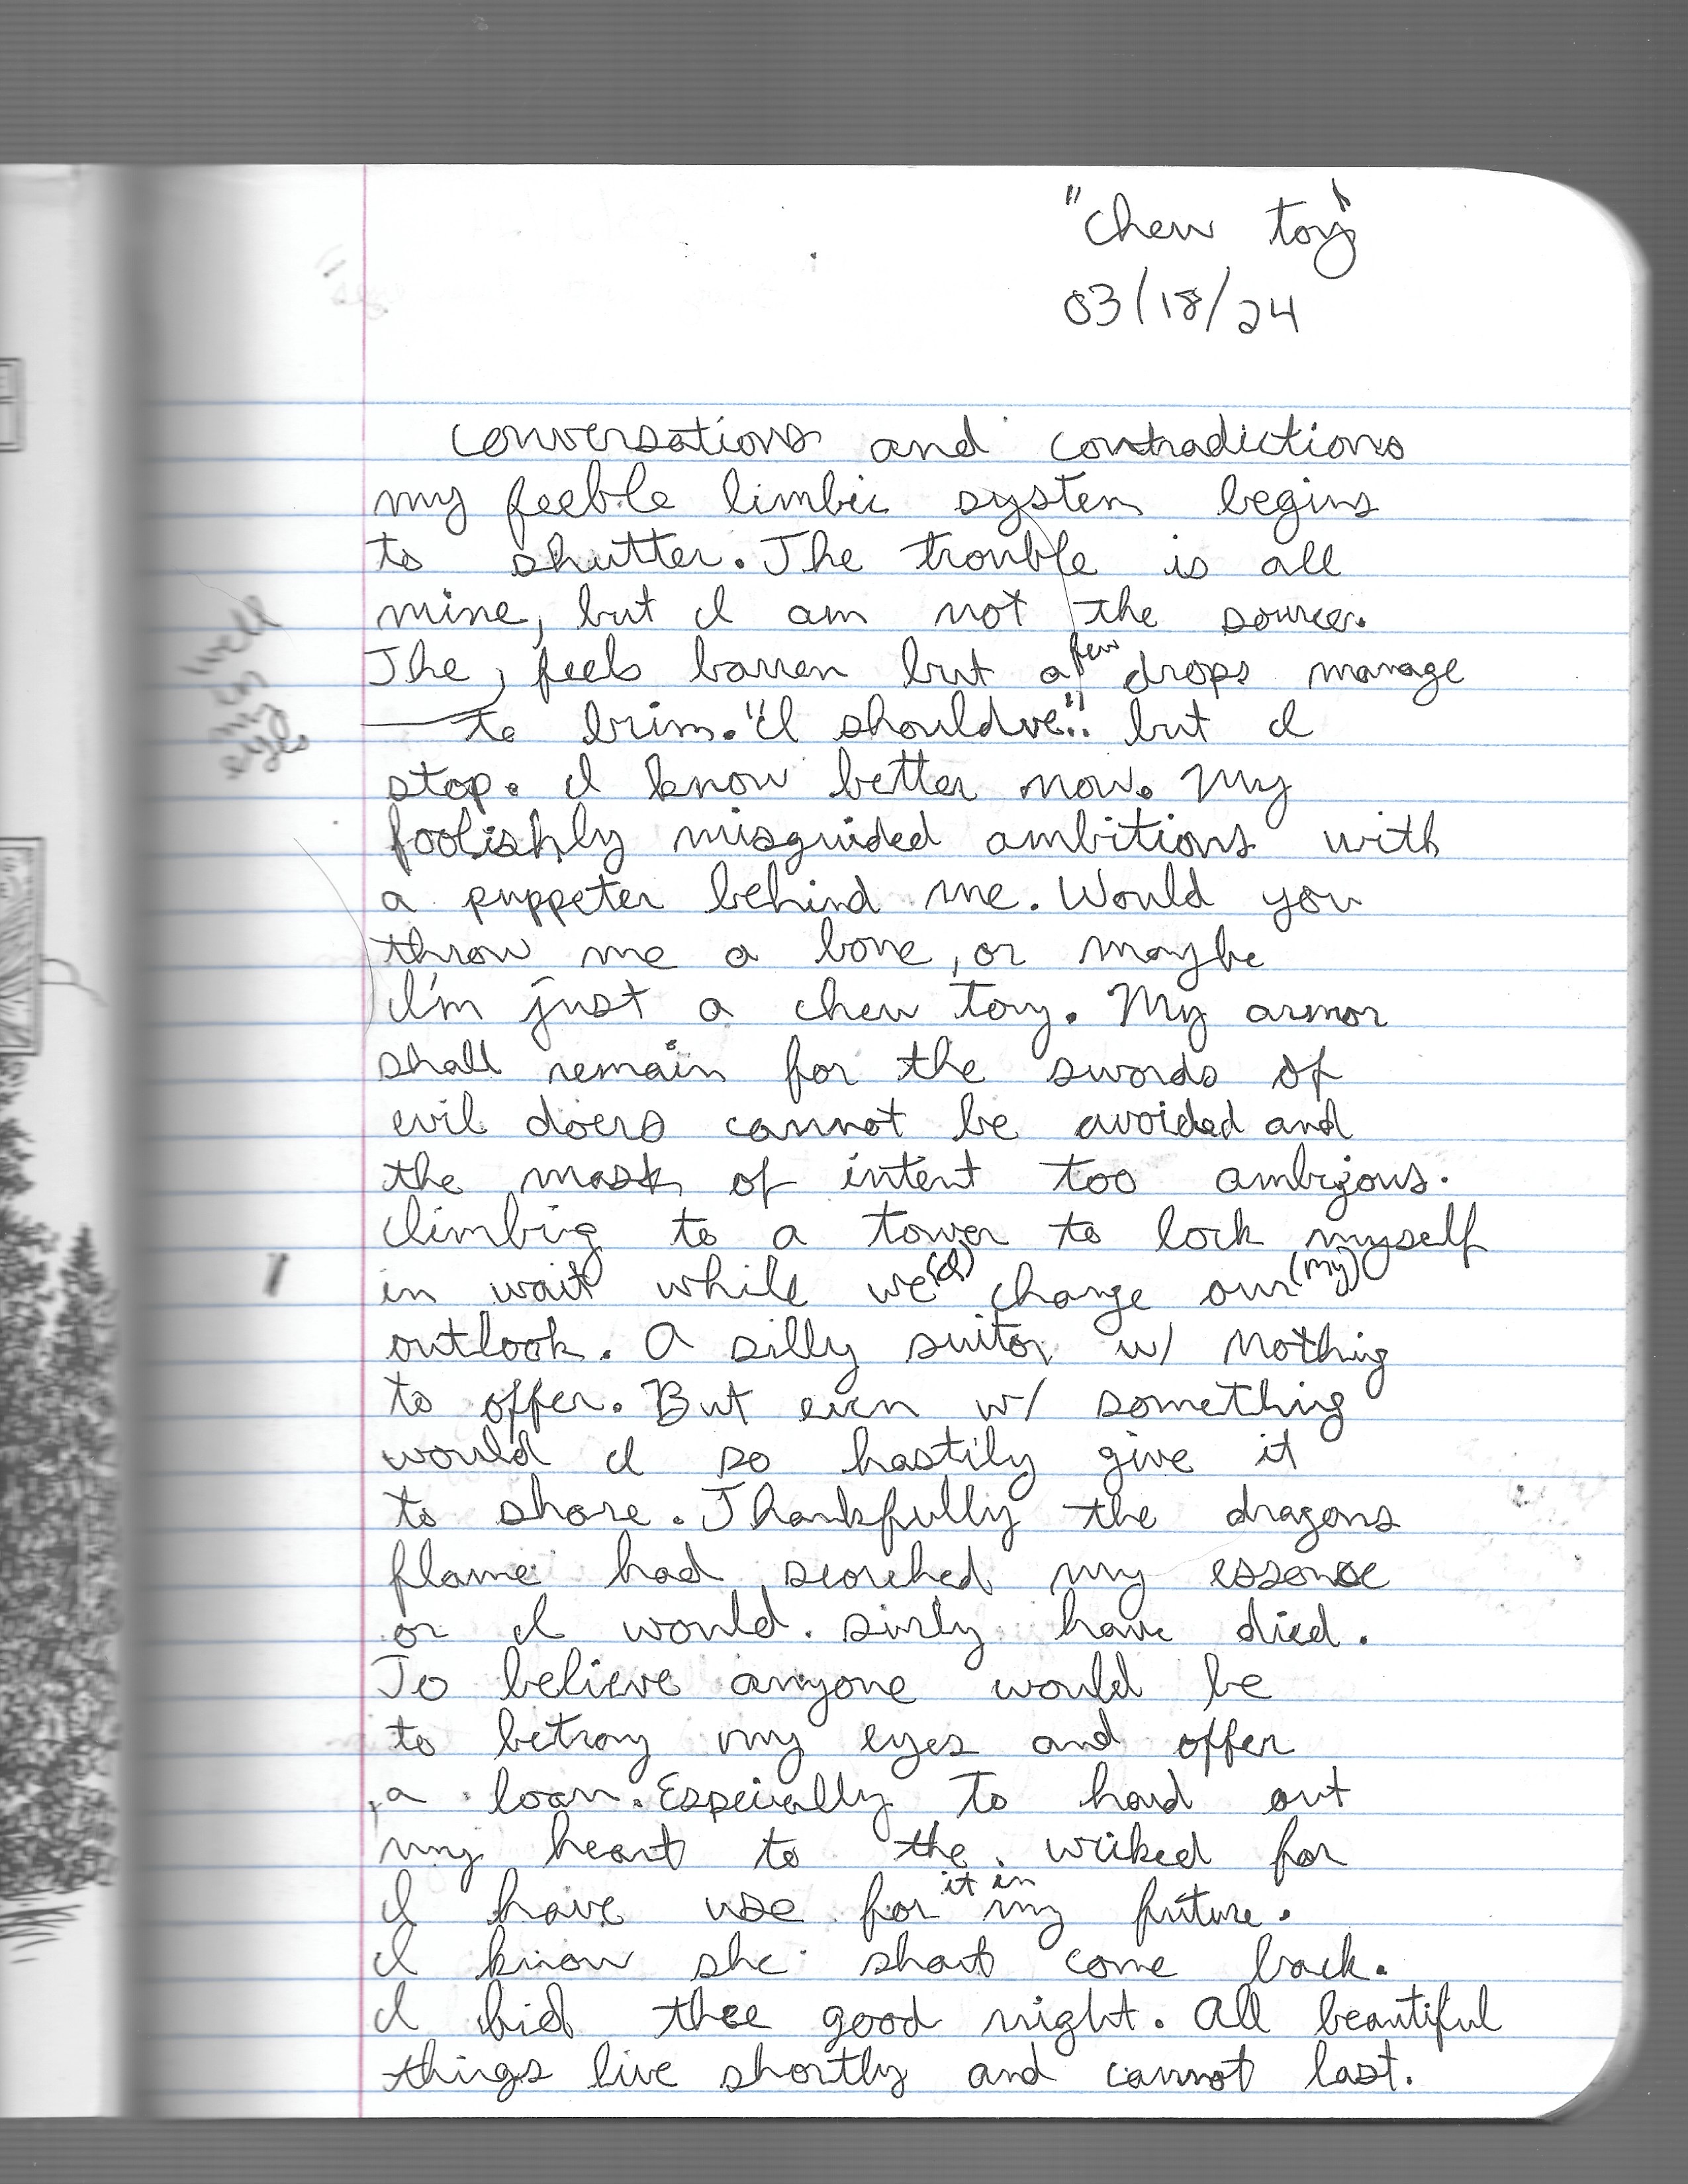 "Chew toy"
03/18/24
Conversations and contradictions
my feeble limbic system begins
to shutter. The trouble is all
mine, but I am not the source.
well
in
my
eyes
The, feels barren but a few drops manage
to brim. "I should've.." but I
stop. I know better now. My
foolishly misguided ambitions with
a puppeter behind me. Would you
throw me a bone, or maybe
I'm just a chew toy. My armor
shall remain for the swords of
evil doers cannot be avoided and
the mask of intent too ambigous.
Climbing to a tower to lock myself
in wait while we (I) change our (my)
outlook. A silly suitor w/ Nothing
to offer. But even w/ something
would I so hastily give it
to share. Thankfully the dragons
flame had scorched my essence
or I would. surly have died.
To believe anyone would be
to betray my eyes and offer
a loan. Especially to hand out
my heart to the wicked for
I have use for it in my future.
I know she shant come back.
I bid thee good night. All beautiful
things live shortly and cannot last.